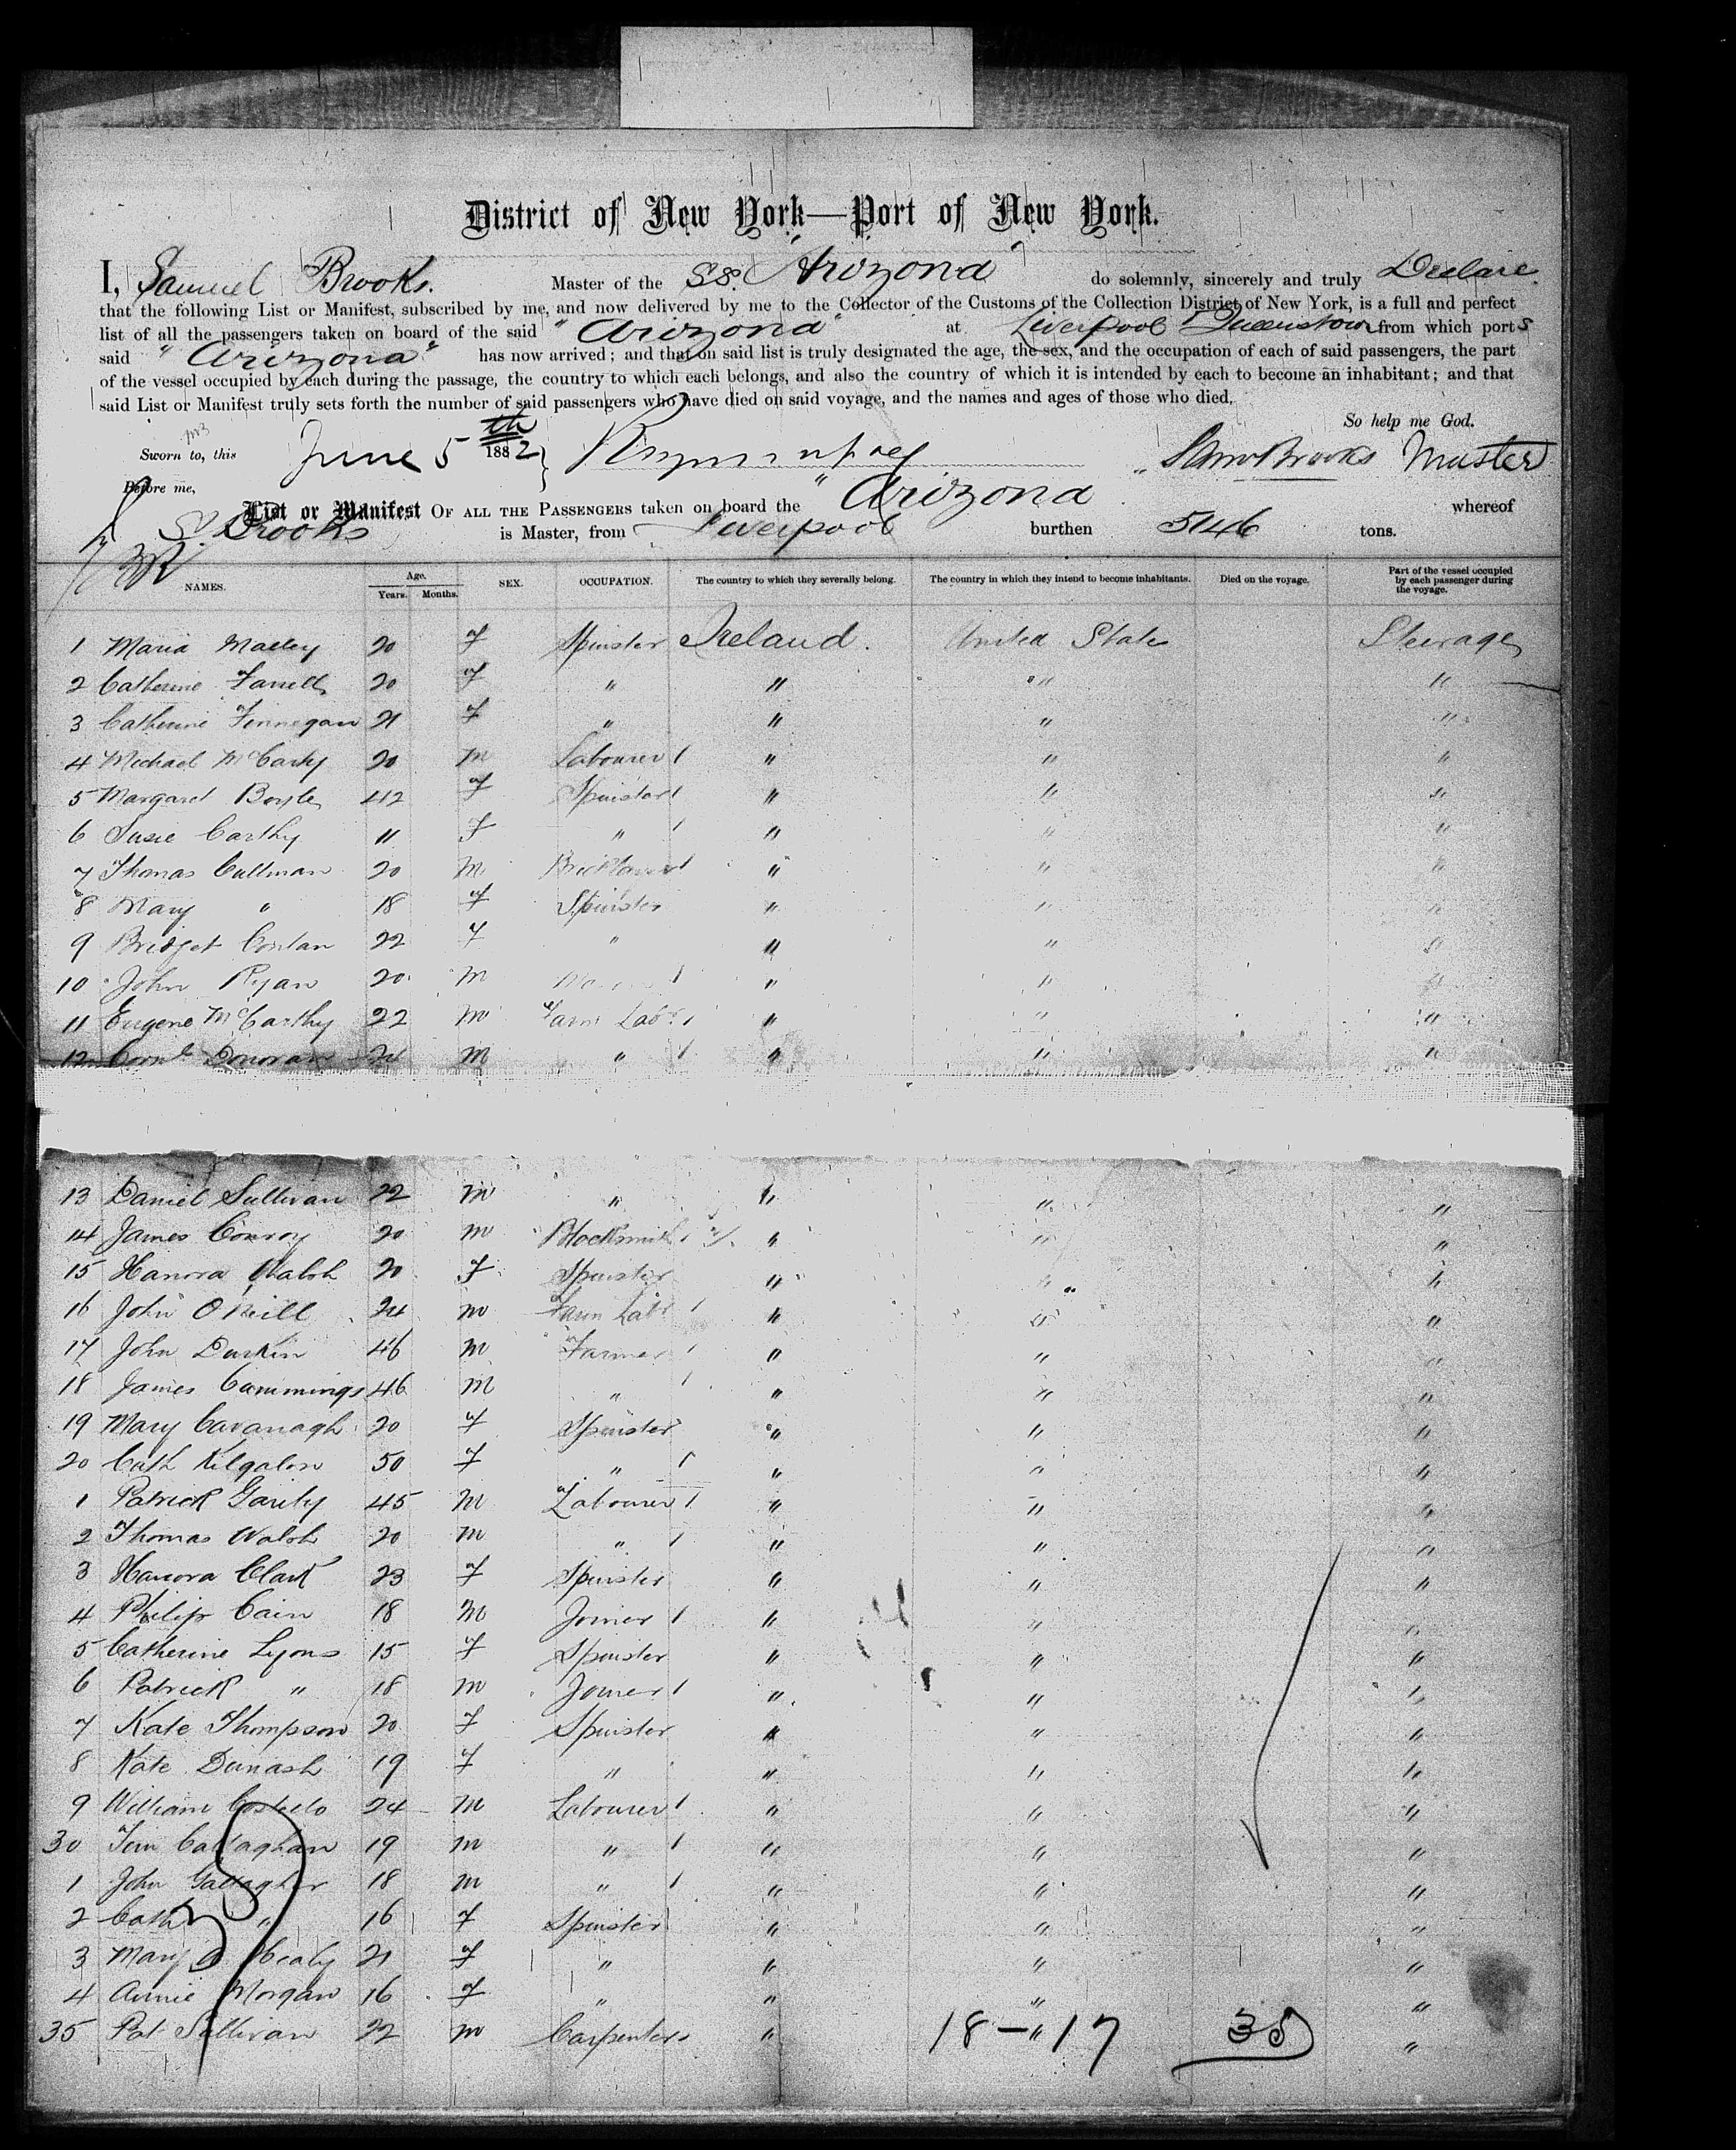 District of New York—Port of New York.
I, Samuel Brooks. Master of the S.S. "Arizona" do solemnly, sincerely and truly Declare
that the following List or Manifest, subscribed by me, and now delivered by me to the Collector of the Customs of the Collection District of New York, is a full and perfect
list of all the passengers taken on board of the said "Arizona" at Liverpool Queenstown from which ports
said "Arizona" has now arrived; and that on said list is truly designated the age, the sex, and the occupation of each of said passengers, the part
of the vessel occupied by each during the passage, the country to which each belongs, and also the country of which it is intended by each to become an inhabitant; and that
said List or Manifest truly sets forth the number of said passengers who have died on said voyage, and the names and ages of those who died.
So help me God.
Sworn to, this June 5th 1882 Saml Brooks Master
Before me,
List or Manifest OF ALL THE PASSENGERS taken on board the "Arizona whereof
S. Brooks is Master, from Liverpool burthen 5146 tons.
NAMES. Age. Years. Months. SEX. OCCUPATION. The country to which they severally belong. The country in which they intend to become inhabitants. Died on the voyage. Part of the vessel occupied by each passenger during the voyage.
1 Maria Malley 20 F Spinster Ireland. United State Steerage
2 Catherine Farrell 20 F " " " "
3 Catherine Finnegan 21 F " " " "
4 Michael McCarthy 20 M Labourer 1 " " "
5 Margaret Boyle 42 F Spinster 1 " " "
6 Susie Carthy 11 F " 1 " " "
7 Thomas Cullinan 20 M Bricklayer 1 " " "
8 Mary " 18 F Spinster " " "
9 Bridget Conlan 22 F " " " "
10 John Ryan 20 M 1 " " "
11 Eugene McCarthy 22 M Farm Labr 1 " " "
12 Corns Donovan 24 M " 1 " " "
13 Daniel Sullivan 22 M " " " "
14 James Conroy 20 M Blacksmith 1 " " "
15 Hanora Walsh 20 F Spinster " " "
16 John O'Neill 24 M Farm Labr 1 " " "
17 John Durkin 46 M Farmer 1 " " "
18 James Cummings 46 M " 1 " " "
19 Mary Cavanagh 20 F Spinster " " "
20 Cath Kilgalon 50 F " 1 " " "
1 Patrick Garity 45 M Labourer 1 " " "
2 Thomas Walsh 20 M " 1 " " "
3 Hanora Clark 23 F Spinster " " "
4 Philip Cain 18 M Joiner 1 " " "
5 Catherine Lyons 15 F Spinster " " "
6 Patrick " 18 M Joiner 1 " " "
7 Kate Thompson 20 F Spinster " " "
8 Kate Dunash 19 F " " " "
9 William Costello 24 M Labourer 1 " " "
30 Tim Callaghan 19 M " 1 " " "
1 John Gallagher 18 M " 1 " " "
2 Cath " 16 F Spinster " " "
3 Mary A. Healy 21 F " " " "
4 Annie Morgan 16 F " " " "
35 Pat Sullivan 22 M Carpenter " " "
18 — 17 35